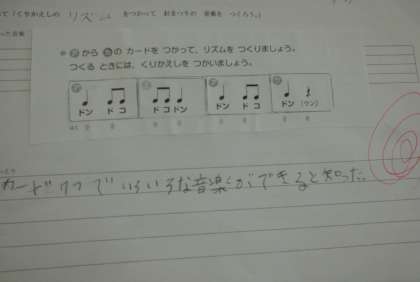 「くりかえしの リズム をつかって おまつりの 音楽を つくろう。」
から の カードを つかって、リズムを つくりましょう。
つくる ときには、くりかえしを つかいましょう。
ドン ドコ ドコドン ドン ドコ ドン (ウン)
カード1つでいろいろな音楽ができると知った。